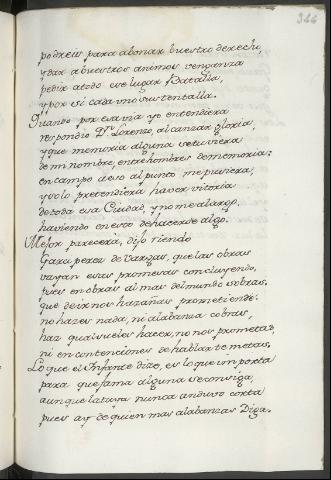 366
podreis para abonar buestro derecho,
y dar a buestros animos venganza
pedir a todo ese lugar Batalla,
y por si cada uno sustentalla.
Quando por esa via yo entendiera
respondio Dn. Lorenzo, alcanzar gloria,
y que memoria alguna se tuviera
de mi nombre, entre hombres de memoria:
en campo de eso al punto me pusiera,
y solo pretendiera haver vitoria
de toda esa Ciudad, y no me alargo,
haviendo en esto de hacerse algo.
Mejor parecera, dijo riendo
Garzi perez de Vargas, que las obras
vayan esas promesas concluyendo,
pues en obras al mas del mundo sobras.
que decirnos hazañas prometiendo:
no hazes nada, ni alabanza cobras,
haz qual sueles hacer, no nos prometas,
ni en contenciones de hablar te metas.
Lo que el Infante dize, es lo que importa
para que fama alguna se consiga,
aunque la tuya nunca anduvo corta
pues ay de quien mas alabanzas Diga.